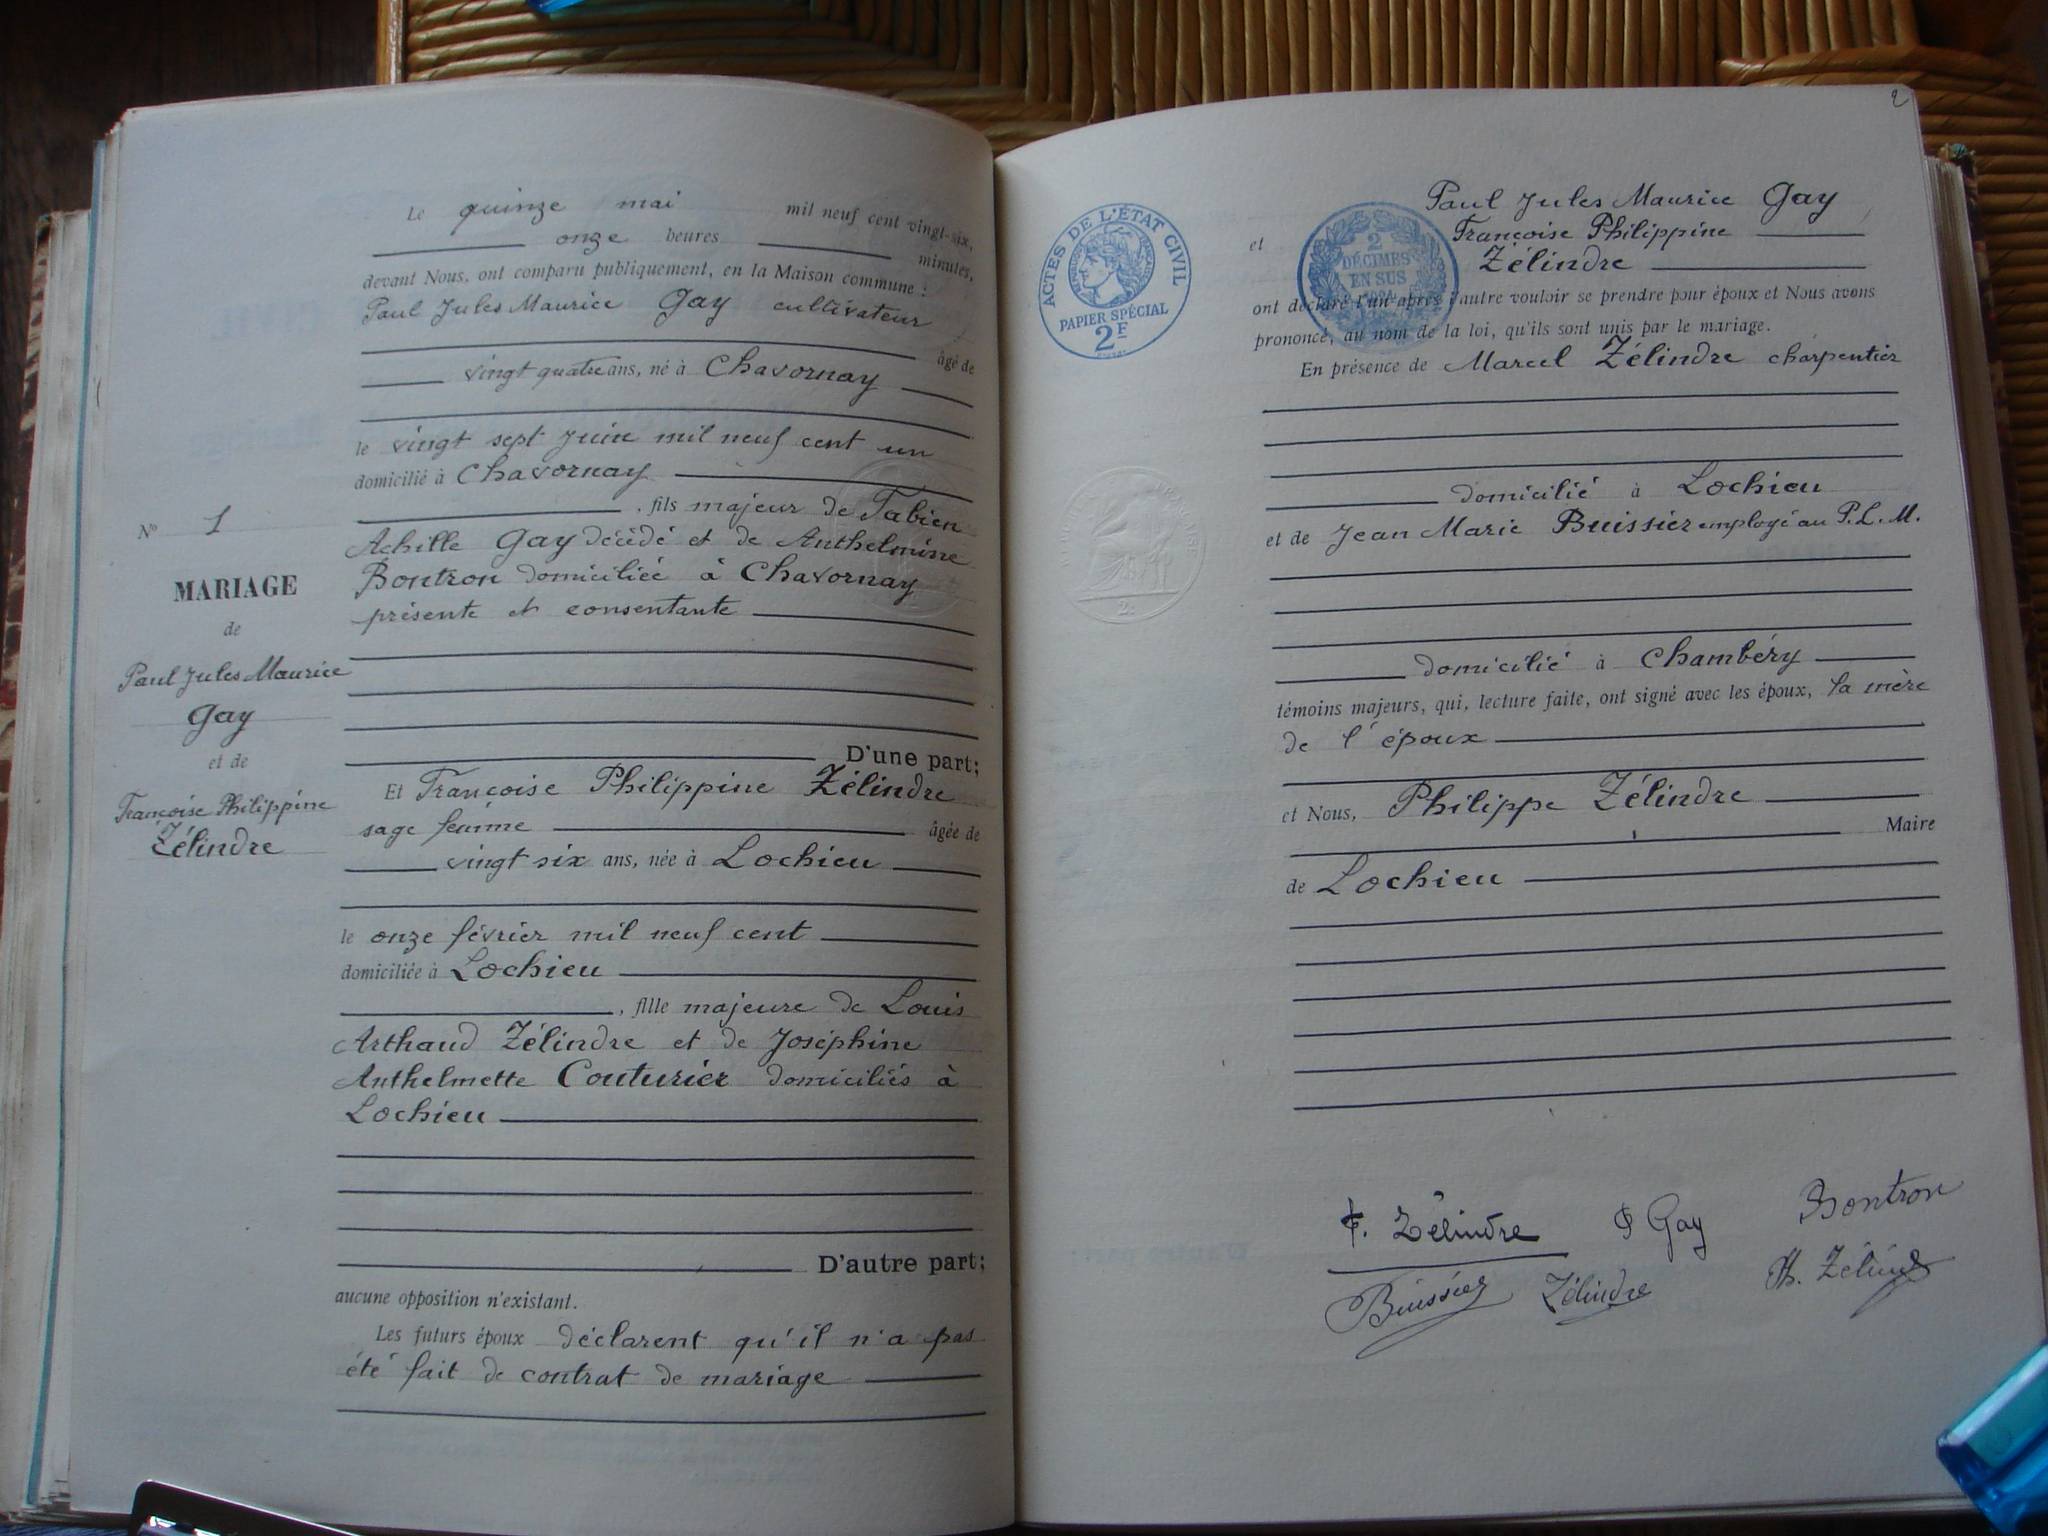 Le quinze mai mil neuf cent vingt-six,
onze heures minutes,
devant Nous, ont comparu publiquement, en la Maison commune :
Paul Jules Maurice Gay cultivateur
âgé de
vingt quatre ans, né à Chavornay
le vingt sept Juin mil neuf cent un
domicilié à Chavornay
, fils majeur de Fabien
Achille Gay décédé et de Anthelmine
Bontron domiciliée à Chavornay
présente et consentante
D'une part;
Et Françoise Philippine Zélindre
sage femme âgée de
vingt six ans, née à Lochieu
le onze février mil neuf cent
domiciliée à Lochieu
, fille majeure de Louis
Arthaud Zélindre et de Joséphine
Anthelmette Couturier domiciliés à
Lochieu
D'autre part;
aucune opposition n'existant.
Les futurs époux déclarent qu'il n'a pas
été fait de contrat de mariage
N° 1
MARIAGE
de
Paul Jules Maurice
Gay
et de
Françoise Philippine
Zélindre
2
ACTES DE L'ÉTAT CIVIL
PAPIER SPÉCIAL
2F
2
DÉCIMES
EN SUS
Paul Jules Maurice Gay
et Françoise Philippine
Zélindre
ont déclaré l'un après l'autre vouloir se prendre pour époux et Nous avons
prononcé, au nom de la loi, qu'ils sont unis par le mariage.
En présence de Marcel Zélindre charpentier
domicilié à Lochieu
et de Jean Marie Buissier employé au P.L.M.
domicilié à Chambéry
témoins majeurs, qui, lecture faite, ont signé avec les époux, la mère
de l'époux
et Nous, Philippe Zélindre
Maire
de Lochieu
F. Zélindre P Gay Bontron
Buissier Zélindre Ph. Zélindre